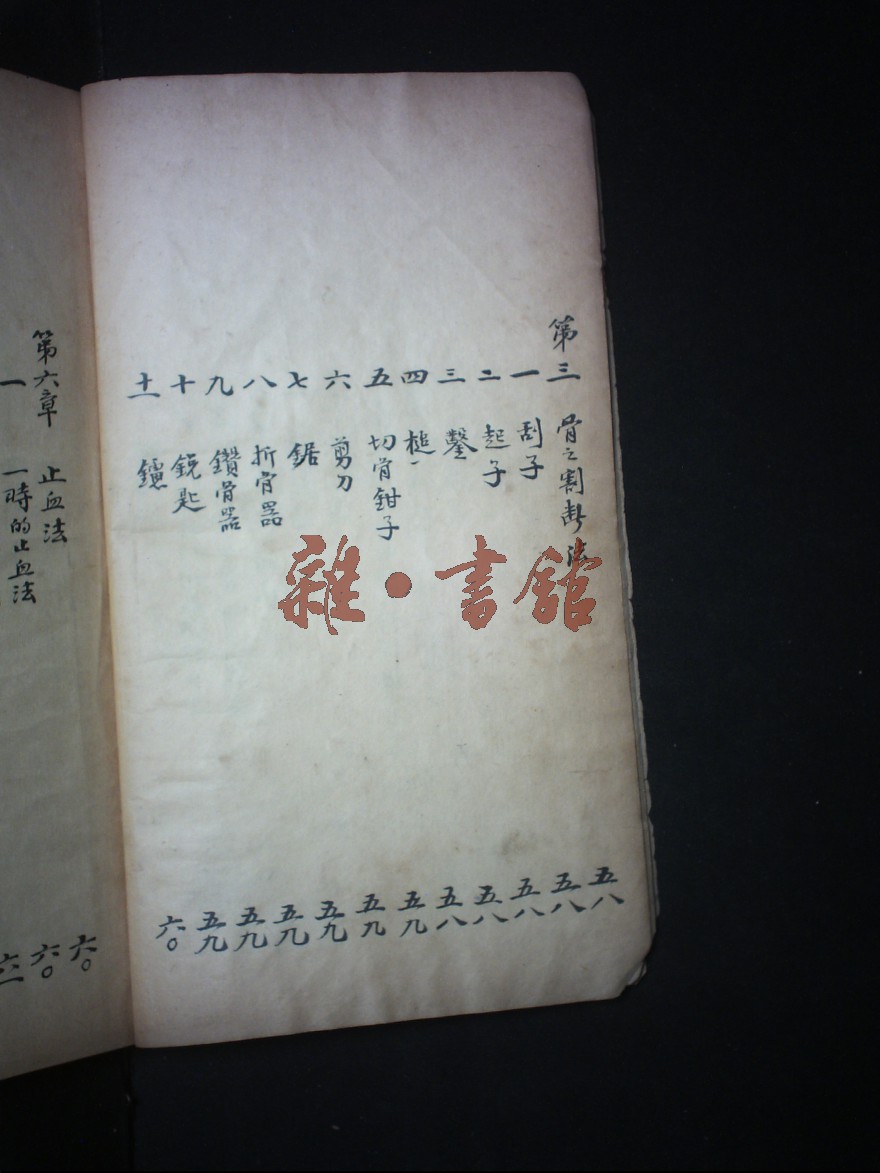 第三 骨之割断法 五八
一 刮子 五八
二 起子 五八
三 鑿 五八
四 槌 五八
五 切骨鉗子 五九
六 剪刀 五九
七 鋸 五九
八 折骨器 五九
九 鑽骨器 五九
十 銳匙 五九
十一 鑢 六〇
第六章 止血法 六〇
一 一時的止血法 六〇
六一
雜·書館